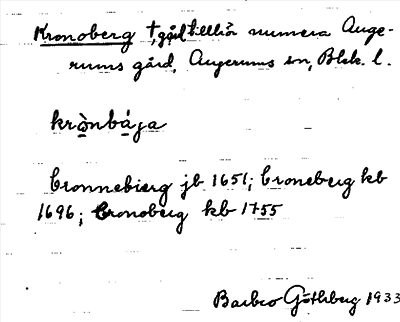 Kronoberg †, gård tillhör numera Auge-
rums gård, Augerums sn, Blek. l.
krònbága
Cronnebierg jb 1651; Croneberg kb
1696; Cronoberg kb 1755
Barbro Göthberg 1933